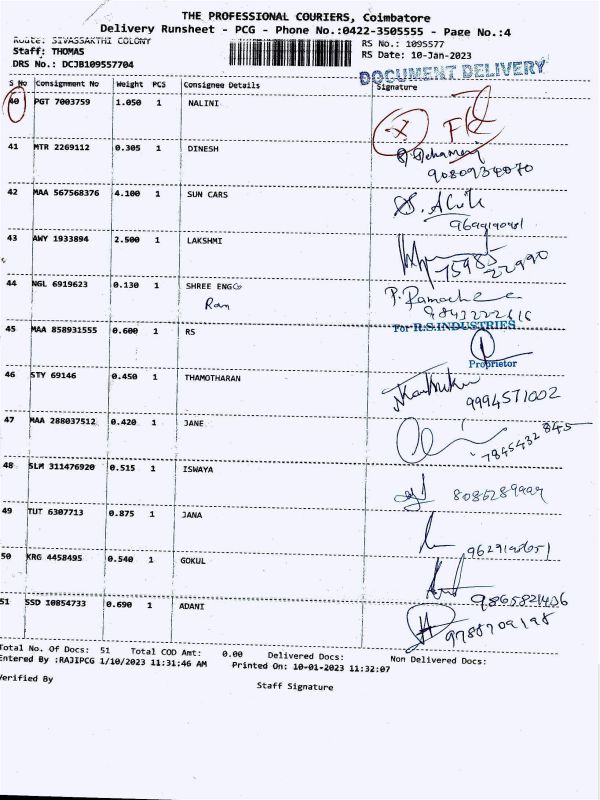 THE PROFESSIONAL COURIERS, Coimbatore
Delivery Runsheet - PCG - Phone No.:0422-3505555 - Page No.:4
Route: SIVASSAKTHI COLONY
RS No.: 1095577
Staff: THOMAS
RS Date: 10-Jan-2023
DRS No.: DCJB109557704
DOCUMENT DELIVERY
S No Consignmment No Weight PCS Consignee Details Signature
40 PGT 7003759 1.050 1 NALINI
41 MTR 2269112 0.305 1 DINESH
42 MAA 567568376 4.100 1 SUN CARS
43 AWY 1933894 2.500 1 LAKSHMI
75985
22990
44 NGL 6919623 0.130 1 SHREE ENGG
Ram
9843222616
45 MAA 858931555 0.600 1 RS
For R.S.INDUSTRIES
Proprietor
46 STY 69146 0.450 1 THAMOTHARAN
9994571002
47 MAA 288037512 0.420 1 JANE
7845432845
48 SLM 311476920 0.515 1 ISWAYA
49 TUT 6307713 0.875 1 JANA
50 KRG 4458495 0.540 1 GOKUL
9865821436
51 SSD 10854733 0.690 1 ADANI
9788709198
Total No. Of Docs: 51 Total COD Amt: 0.00 Delivered Docs: Non Delivered Docs:
Entered By :RAJIPCG 1/10/2023 11:31:46 AM Printed On: 10-01-2023 11:32:07
Verified By
Staff Signature